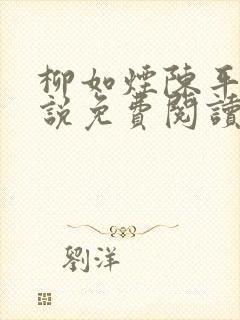 柳如煙陳平
說免費閱讀
劉洋